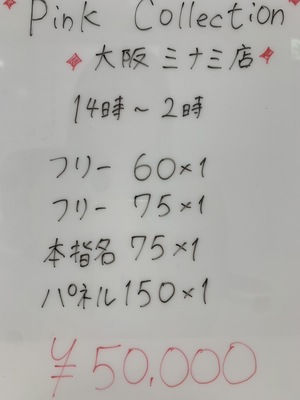 Pink Collection
大阪ミナミ店
14時～2時
フリー 60×1
フリー 75×1
本指名 75×1
パネル 150×1
¥50,000